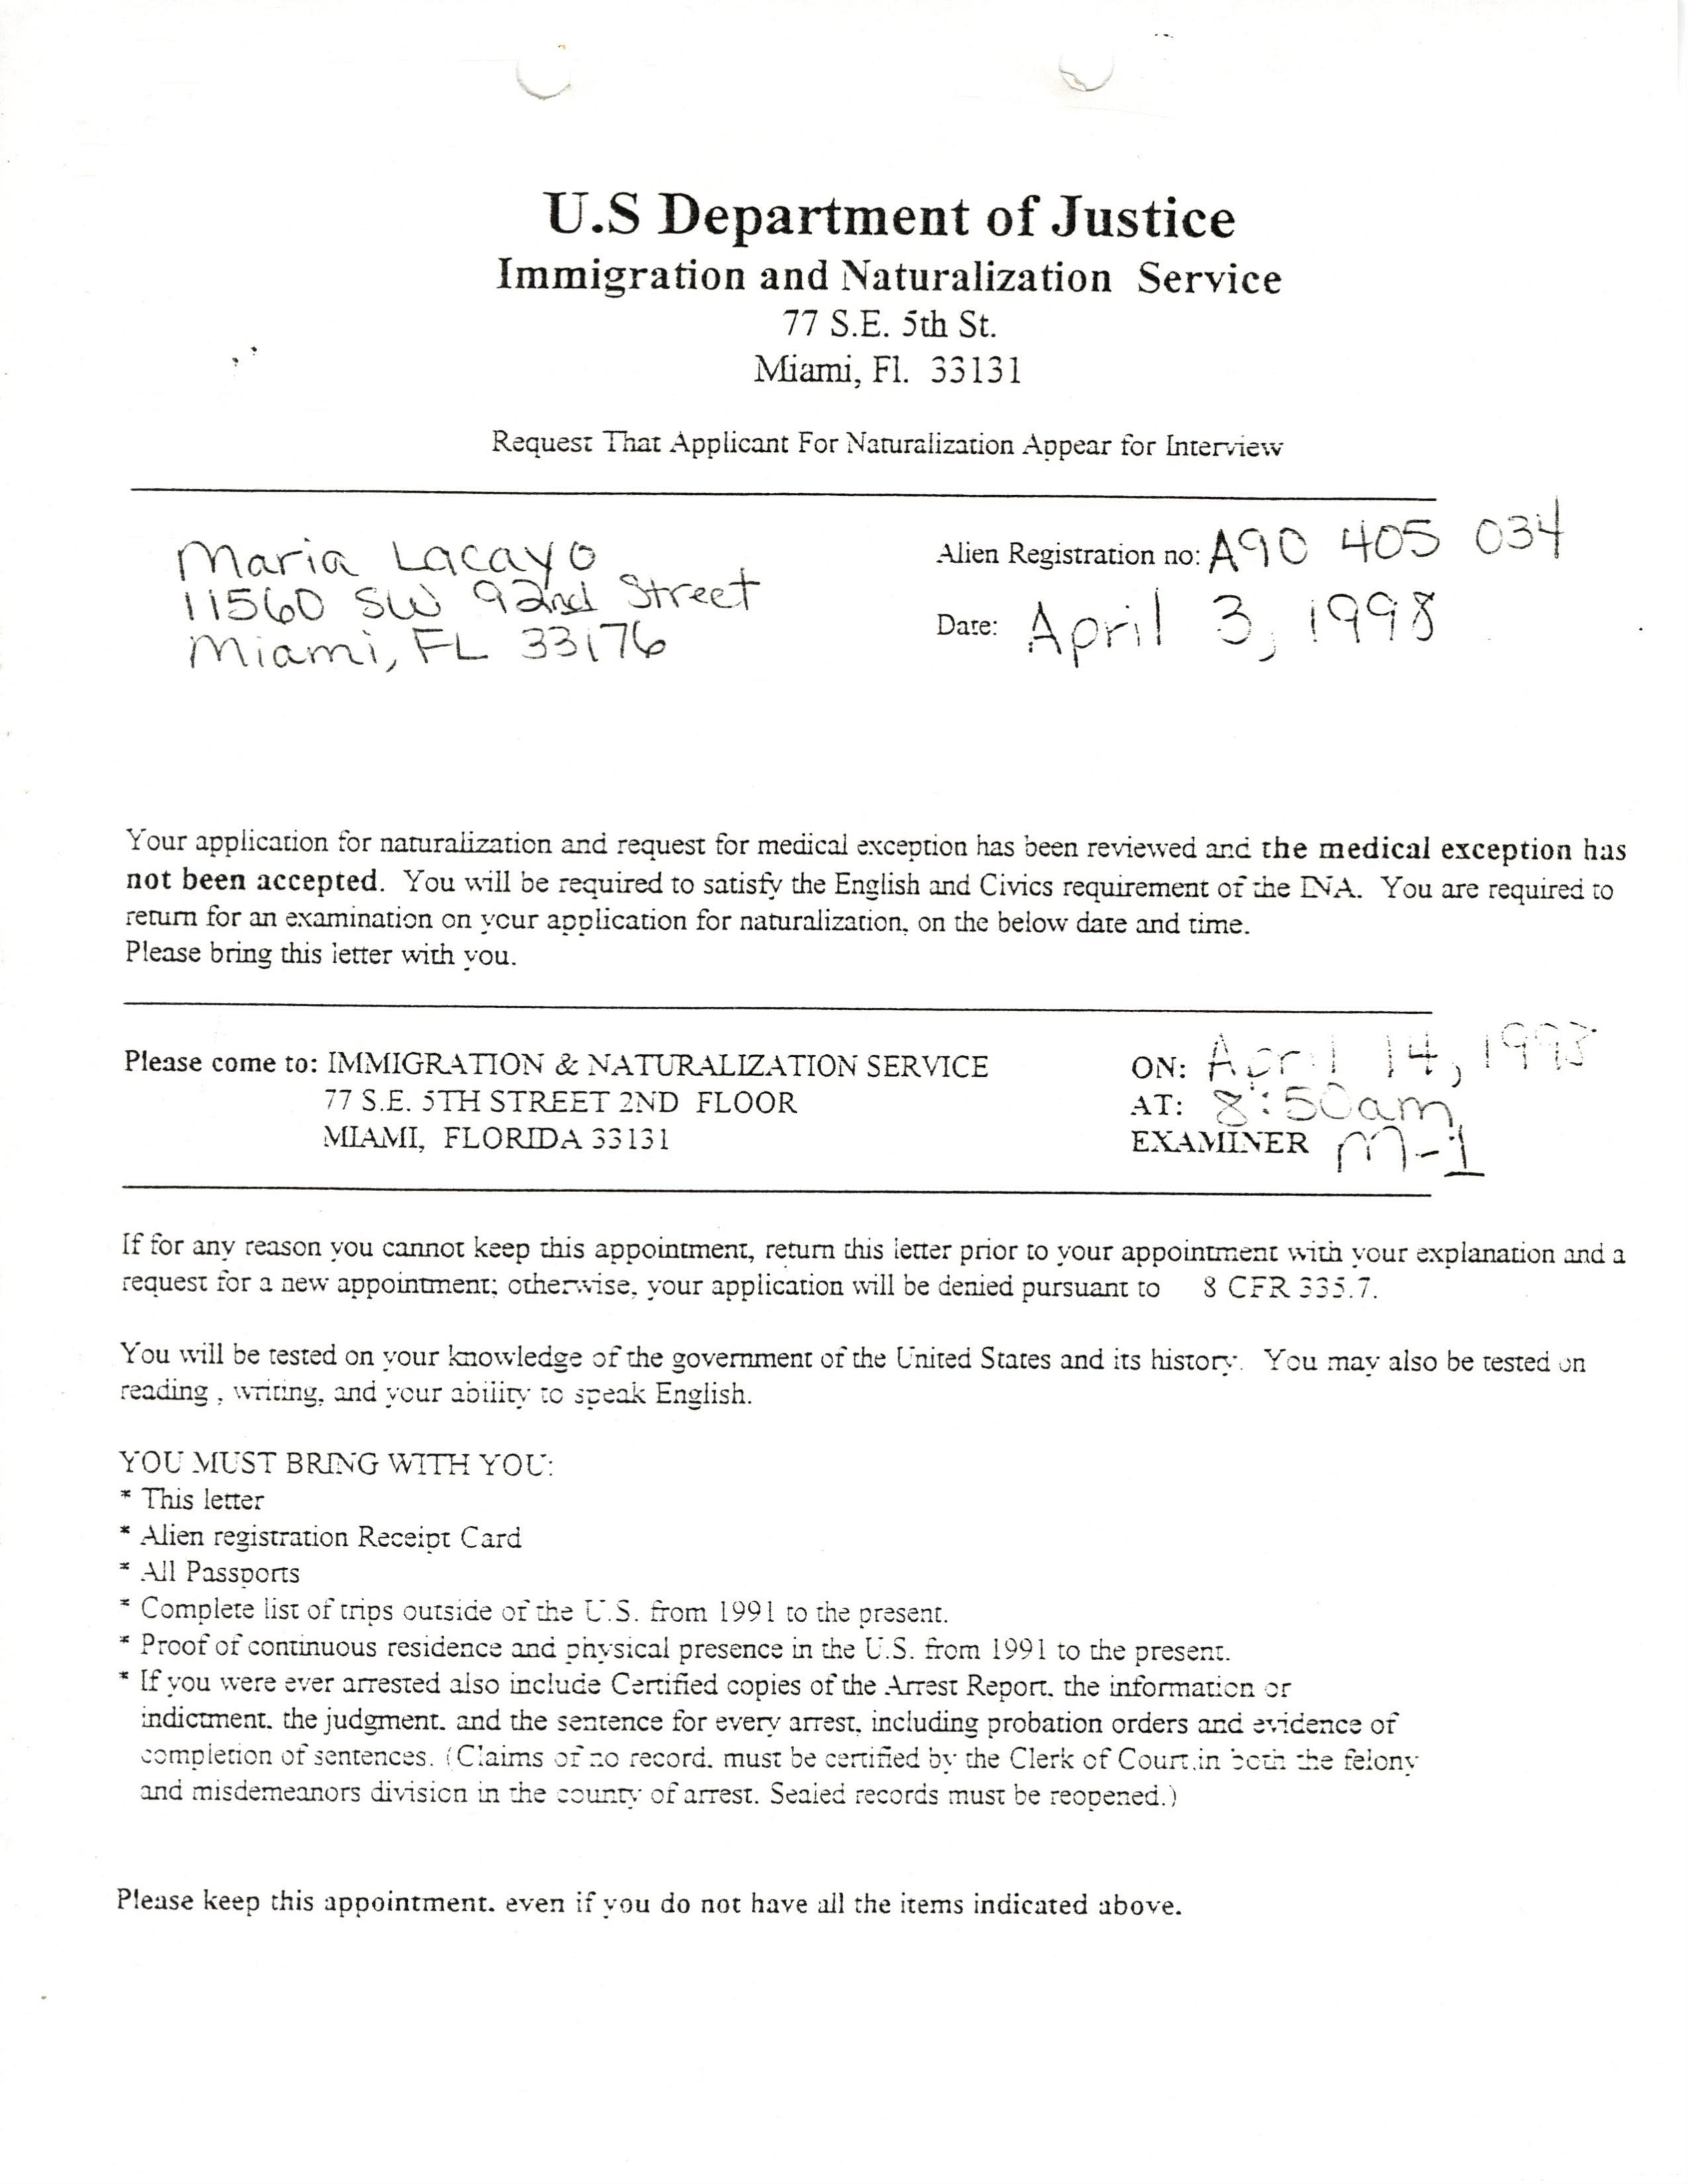 U.S Department of Justice
Immigration and Naturalization Service
77 S.E. 5th St.
Miami, Fl. 33131
Request That Applicant For Naturalization Appear for Interview
Maria Lacayo
11560 SW 92nd Street
Miami, FL 33176
Alien Registration no: A90 405 034
Date: April 3, 1998
Your application for naturalization and request for medical exception has been reviewed and the medical exception has
not been accepted. You will be required to satisfy the English and Civics requirement of the INA. You are required to
return for an examination on your application for naturalization, on the below date and time.
Please bring this letter with you.
Please come to: IMMIGRATION & NATURALIZATION SERVICE
77 S.E. 5TH STREET 2ND FLOOR
MIAMI, FLORIDA 33131
ON: April 14, 1998
AT: 8:50am
EXAMINER M-1
If for any reason you cannot keep this appointment, return this letter prior to your appointment with your explanation and a
request for a new appointment; otherwise, your application will be denied pursuant to 8 CFR 335.7.
You will be tested on your knowledge of the government of the United States and its history. You may also be tested on
reading , writing, and your ability to speak English.
YOU MUST BRING WITH YOU:
* This letter
* Alien registration Receipt Card
* All Passports
* Complete list of trips outside of the U.S. from 1991 to the present.
* Proof of continuous residence and physical presence in the U.S. from 1991 to the present.
* If you were ever arrested also include Certified copies of the Arrest Report. the information or
indictment. the judgment. and the sentence for every arrest. including probation orders and evidence of
completion of sentences. (Claims of no record. must be certified by the Clerk of Court.in both the felony
and misdemeanors division in the county of arrest. Sealed records must be reopened.)
Please keep this appointment. even if you do not have all the items indicated above.